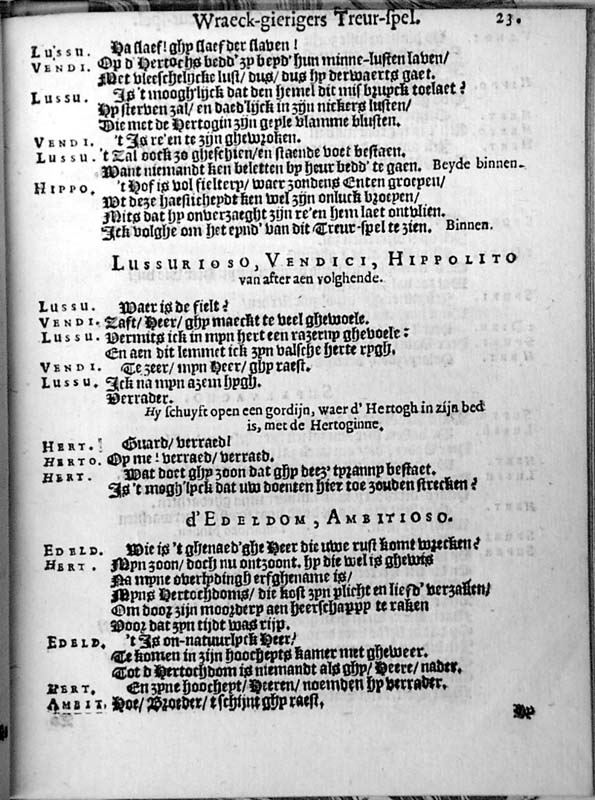 Wraeck-gierigers Treur-spel. 23.
LUSSU. Ha slaef! ghy slaef der slaven!
VENDI. Op d'Hertochs bedd' zy beyd' hun minne-lusten laven/
Met vleeschelijcke lust/ dus/ dus hy derwaerts gaet.
LUSSU. Is 't moogh'lijck dat den hemel dit misbruyck toelaet?
Hy sterven zal/ en daed'lijck in zijn nickers lusten/
Die met de Hertogin zijn geyle vlamme blusten.
VENDI. 't Is re'en te zijn ghewroken.
LUSSU. 't Zal oock zo gheschien/ en staende voet bestaen.
Want niemandt ken beletten by heur bedd' te gaen. Beyde binnen.
HIPPO. 't Hof is vol fieltery/ waer zondens Enten groeyen/
Wt deze haesticheydt ken wel zijn onluck vloeyen/
Mits dat hy onverzaeght zijn re'en hem laet ontvlien.
Ick volghe om het eynd' van dit Treur-spel te zien. Binnen.
LUSSURIOSO, VENDICI, HIPPOLITO
van after aen volghende.
LUSSU. Waer is de fielt?
VENDI. Zaft/ Heer/ ghy maeckt te veel ghewoele.
LUSSU. Vermits ick in myn hert een razerny ghevoele:
En aen dit lemmet ick zyn valsche herte rygh.
VENDI. Te zeer/ myn Heer/ ghy raest.
LUSSU. Ick na myn azem hygh.
Verrader.
Hy schuyft open een gordijn, waer d' Hertogh in zijn bed
is, met de Hertoginne.
HERT. Guard/ verraed!
HERTO. Op me! verraed/ verraed.
HERT. Wat doet ghy zoon dat ghy deez' tyranny bestaet.
Is 't mogh'lyck dat uw doenten hier toe zouden strecken?
d'EDELDOM, AMBITIOSO.
EDELD. Wie is 't ghenaed'ghe Heer die uwe rust komt wrecken?
HERT. Myn zoon/ doch nu ontzoont. hy die wel is ghewis
Na myne overlydingh erfghename is/
Myns Hertochdoms/ die kost zyn plicht en liefd' verzaken/
Om door zijn moordery aen heerschappy te raken
Voor dat zyn tijdt was rijp.
EDELD. 't Is on-natuurlyck Heer/
Te komen in zijn hoocheyts kamer met gheweer.
Tot d Hertochdom is niemandt als ghy/ Heere/ nader.
HERT. En zyne hoocheyt/ Heeren/ noemden hy verrader.
AMBIT. Hoe/ Broeder/ t schijnt ghy raest.